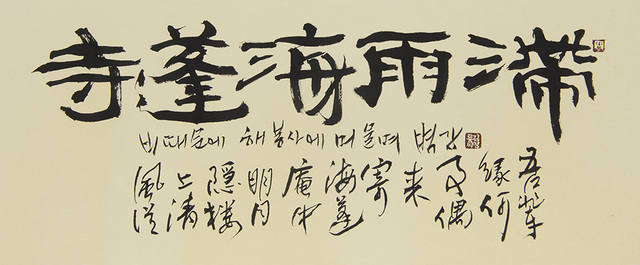 滯雨海蓬寺
비 때문에 해봉사에 머물며 벽강
吾輩
緣何
事偶
来
寄
海蓬
庵中
明月
隐楼
上清
風從